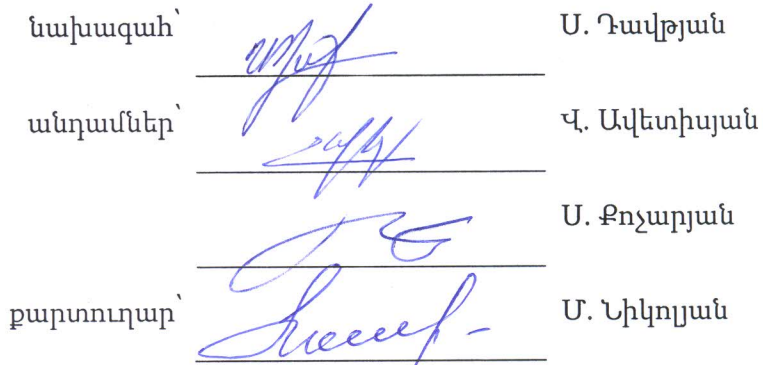 նախագահ՝ Ս. Դավթյան
անդամներ՝ Վ. Ավետիսյան
Ս. Քոչարյան
քարտուղար՝ Մ. Նիկոլյան